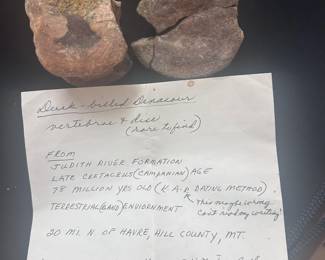 Duck-billed Dinasour
vertebrae & disc
(rare to find)
FROM
JUDITH RIVER FORMATION
LATE CRETACEUS (CAMPANIAN) AGE
78 MILLION YRS OLD (K.A.R. DATING METHOD)
TERRESTRIAL (LAND) ENVIORNMENT
This maybe wrong
can't read my writing!
20 MI. N OF HAVRE, HILL COUNTY, MT.